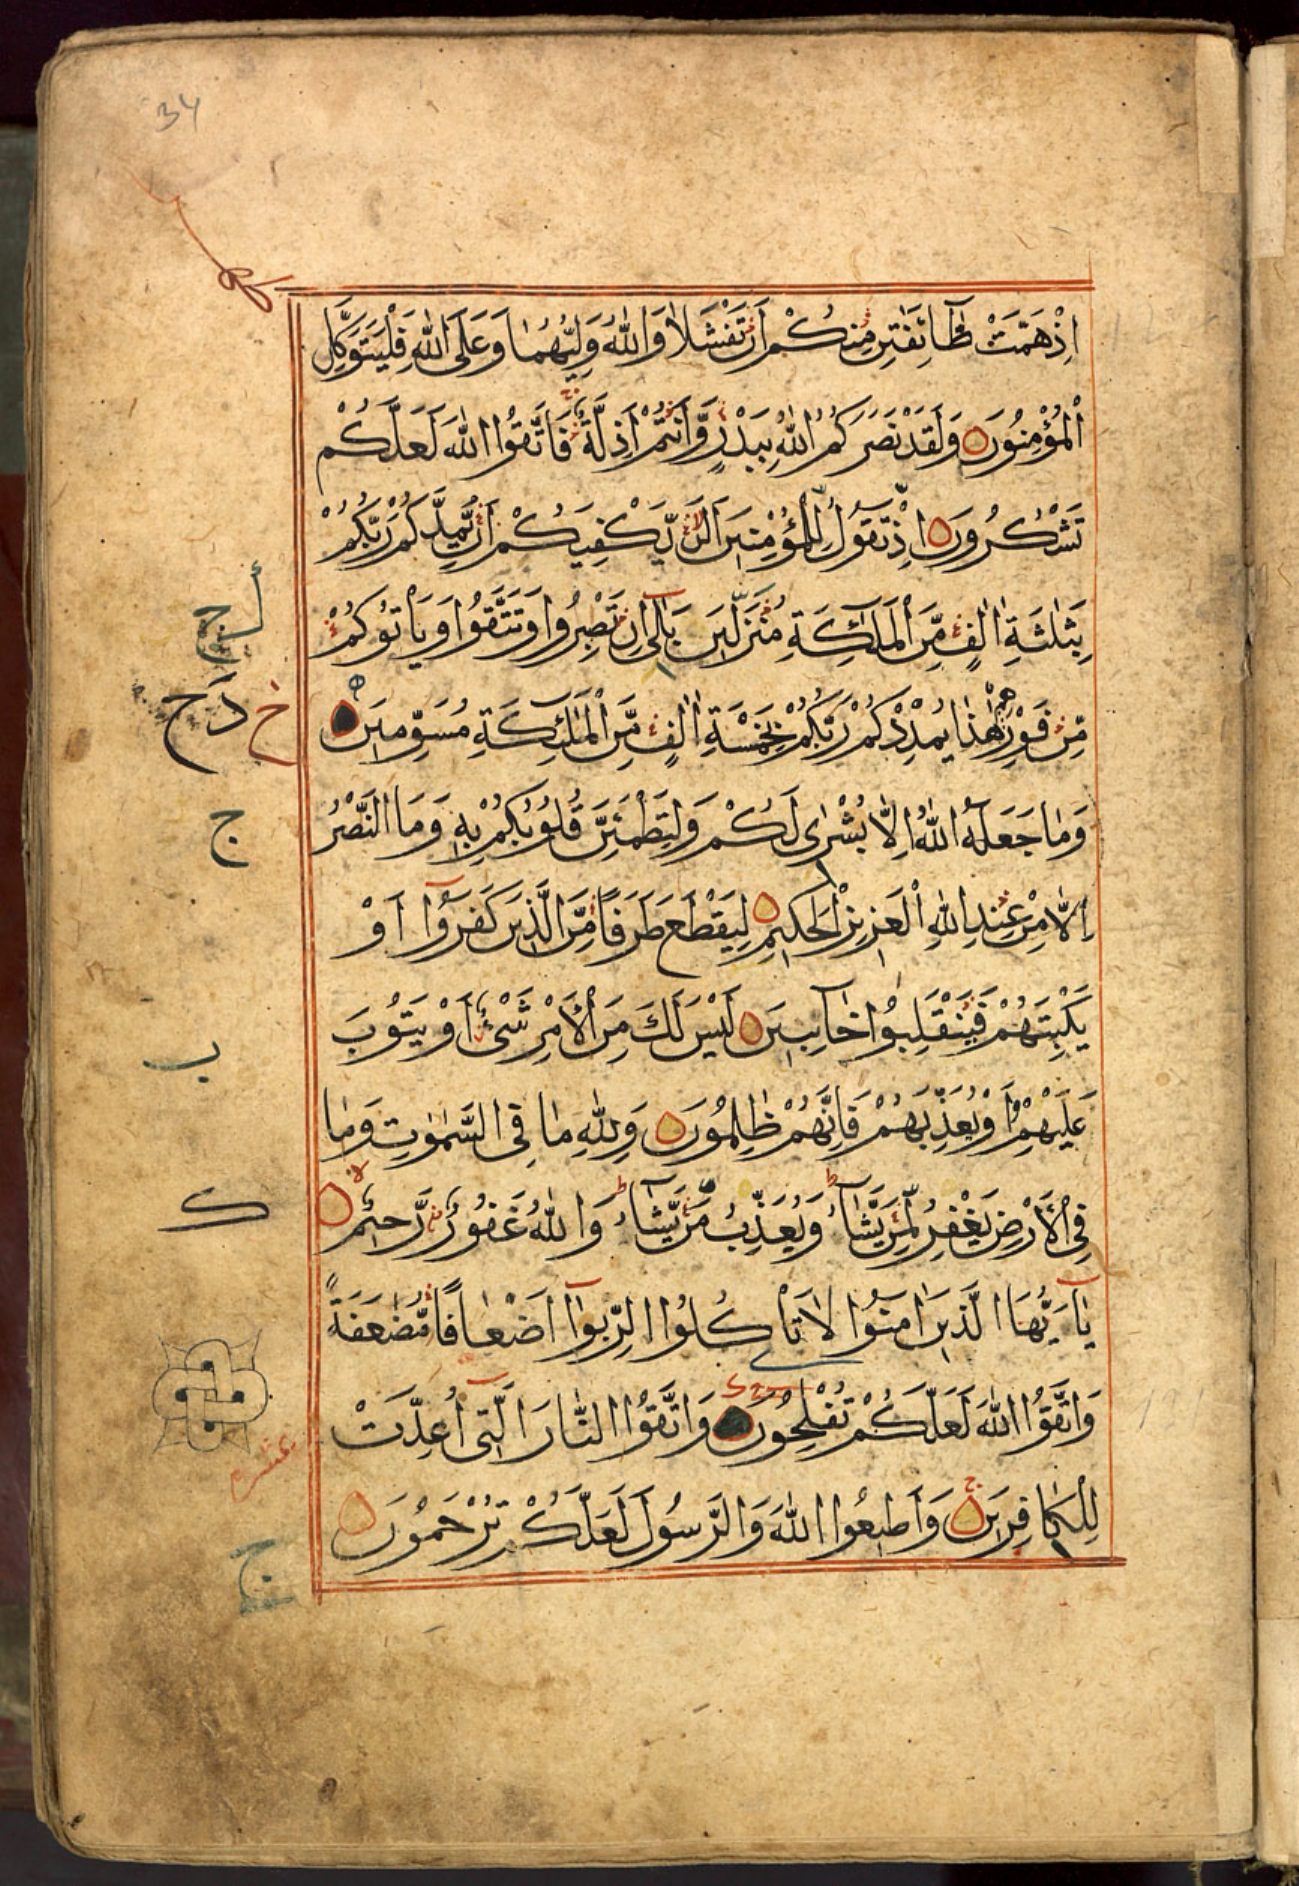 34
اِذْهَمَّتْ طَّآئِفَتٰنِ مِنْكُمْ اَنْ تَفْشَلَا وَاللّٰهُ وَلِيُّهُمَا وَعَلَى اللّٰهِ فَلْيَتَوَكَّلِ
الْمُؤْمِنُوْنَ وَلَقَدْ نَصَرَكُمُ اللّٰهُ بِبَدْرٍ وَّاَنْتُمْ اَذِلَّةٌ فَاتَّقُوا اللّٰهَ لَعَلَّكُمْ
تَشْكُرُوْنَ اِذْ تَقُوْلُ لِلْمُؤْمِنِيْنَ اَلَنْ يَّكْفِيَكُمْ اَنْ يُّمِدَّكُمْ رَبُّكُمْ
بِثَلٰثَةِ اٰلٰفٍ مِّنَ الْمَلٰٓئِكَةِ مُنْزَلِيْنَ بَلٰٓى اِنْ تَصْبِرُوْا وَتَتَّقُوْا وَيَاْتُوْكُمْ
مِّنْ فَوْرِهِمْ هٰذَا يُمْدِدْكُمْ رَبُّكُمْ بِخَمْسَةِ اٰلٰفٍ مِّنَ الْمَلٰٓئِكَةِ مُسَوِّمِيْنَ
وَمَا جَعَلَهُ اللّٰهُ اِلَّا بُشْرٰى لَكُمْ وَلِتَطْمَئِنَّ قُلُوْبُكُمْ بِهٖ وَمَا النَّصْرُ
اِلَّا مِنْ عِنْدِ اللّٰهِ الْعَزِيْزِ الْحَكِيْمِ لِيَقْطَعَ طَرَفًا مِّنَ الَّذِيْنَ كَفَرُوْٓا اَوْ
يَكْبِتَهُمْ فَيَنْقَلِبُوْا خَآئِبِيْنَ لَيْسَ لَكَ مِنَ الْاَمْرِ شَىْءٌ اَوْ يَتُوْبَ
عَلَيْهِمْ اَوْ يُعَذِّبَهُمْ فَاِنَّهُمْ ظٰلِمُوْنَ وَلِلّٰهِ مَا فِى السَّمٰوٰتِ وَمَا
فِى الْاَرْضِ يَغْفِرُ لِمَنْ يَّشَآءُ وَيُعَذِّبُ مَنْ يَّشَآءُ وَاللّٰهُ غَفُوْرٌ رَّحِيْمٌ
يٰٓاَيُّهَا الَّذِيْنَ اٰمَنُوْا لَا تَاْكُلُوا الرِّبٰٓوا اَضْعَافًا مُّضٰعَفَةً
وَاتَّقُوا اللّٰهَ لَعَلَّكُمْ تُفْلِحُوْنَ وَاتَّقُوا النَّارَ الَّتِىْٓ اُعِدَّتْ
لِلْكَافِرِيْنَ وَاَطِيْعُوا اللّٰهَ وَالرَّسُوْلَ لَعَلَّكُمْ تُرْحَمُوْنَ
ج
ب
ك
عشر
ج